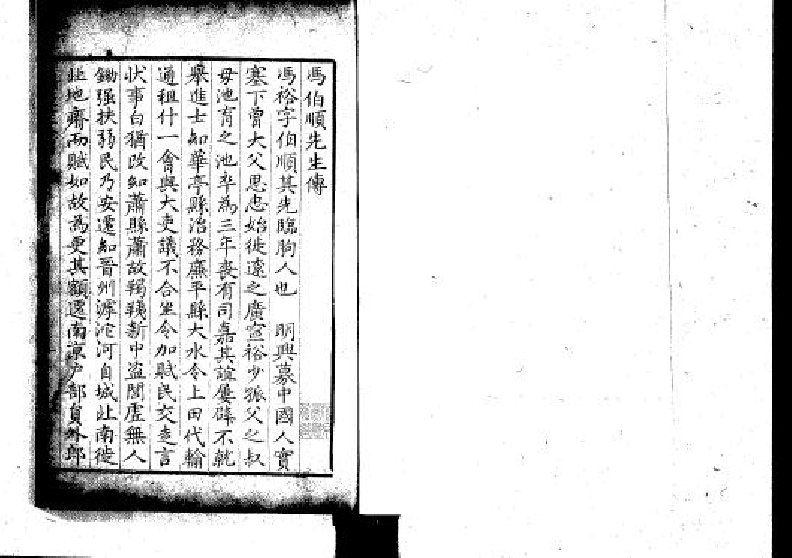 馮伯順先生傳
馮裕字伯順其先臨朐人也　明興募中國人實
塞下曾大父思忠始徙遼之廣寧裕少孤父之叔
母池育之池卒為三年喪有司嘉其誼屢辟不就
舉進士知華亭縣治務廉平縣大水令上田代輸
逋租什一會與大吏議不合坐令加賦民交走言
狀事白猶改知蕭縣蕭故羯羠新中盜閭虛無人
鋤强扶弱民乃安遷知晉州滹沱河自城北南徙
地齊而賦如故為更其額遷南京戶部員外郎